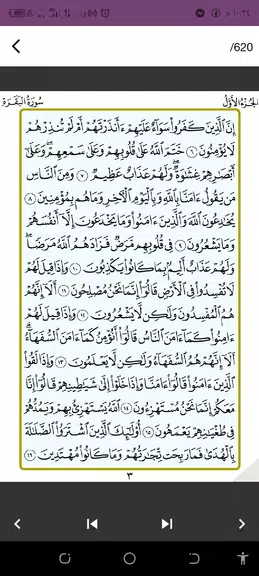 ١٠:٢٤ م
/620
الجُزْءُ الأَوَّلُ
سُورَةُ البَقَرَةِ
إِنَّ ٱلَّذِينَ كَفَرُوا۟ سَوَآءٌ عَلَيْهِمْ ءَأَنذَرْتَهُمْ أَمْ لَمْ تُنذِرْهُمْ
لَا يُؤْمِنُونَ ٦ خَتَمَ ٱللَّهُ عَلَىٰ قُلُوبِهِمْ وَعَلَىٰ سَمْعِهِمْ ۖ وَعَلَىٰٓ
أَبْصَٰرِهِمْ غِشَٰوَةٌ ۖ وَلَهُمْ عَذَابٌ عَظِيمٌ ٧ وَمِنَ ٱلنَّاسِ
مَن يَقُولُ ءَامَنَّا بِٱللَّهِ وَبِٱلْيَوْمِ ٱلْءَاخِرِ وَمَا هُم بِمُؤْمِنِينَ ٨
يُخَٰدِعُونَ ٱللَّهَ وَٱلَّذِينَ ءَامَنُوا۟ وَمَا يَخْدَعُونَ إِلَّآ أَنفُسَهُمْ
وَمَا يَشْعُرُونَ ٩ فِى قُلُوبِهِم مَّرَضٌ فَزَادَهُمُ ٱللَّهُ مَرَضًا ۖ
وَلَهُمْ عَذَابٌ أَلِيمٌۢ بِمَا كَانُوا۟ يَكْذِبُونَ ١٠ وَإِذَا قِيلَ لَهُمْ
لَا تُفْسِدُوا۟ فِى ٱلْأَرْضِ قَالُوٓا۟ إِنَّمَا نَحْنُ مُصْلِحُونَ ١١ أَلَآ إِنَّهُمْ
هُمُ ٱلْمُفْسِدُونَ وَلَٰكِن لَّا يَشْعُرُونَ ١٢ وَإِذَا قِيلَ لَهُمْ
ءَامِنُوا۟ كَمَآ ءَامَنَ ٱلنَّاسُ قَالُوٓا۟ أَنُؤْمِنُ كَمَآ ءَامَنَ ٱلسُّفَهَآءُ ۗ
أَلَآ إِنَّهُمْ هُمُ ٱلسُّفَهَآءُ وَلَٰكِن لَّا يَعْلَمُونَ ١٣ وَإِذَا لَقُوا۟
ٱلَّذِينَ ءَامَنُوا۟ قَالُوٓا۟ ءَامَنَّا وَإِذَا خَلَوْا۟ إِلَىٰ شَيَٰطِينِهِمْ قَالُوٓا۟ إِنَّا
مَعَكُمْ إِنَّمَا نَحْنُ مُسْتَهْزِءُونَ ١٤ ٱللَّهُ يَسْتَهْزِئُ بِهِمْ وَيَمُدُّهُمْ
فِى طُغْيَٰنِهِمْ يَعْمَهُونَ ١٥ أُو۟لَٰٓئِكَ ٱلَّذِينَ ٱشْتَرَوُا۟ ٱلضَّلَٰلَةَ
بِٱلْهُدَىٰ فَمَا رَبِحَت تِّجَٰرَتُهُمْ وَمَا كَانُوا۟ مُهْتَدِينَ ١٦
٣